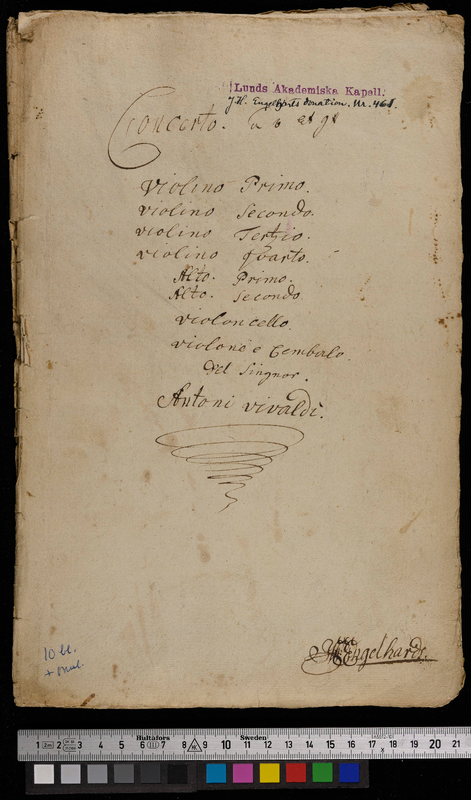 Lunds Akademiska Kapell.
J.H. Engelharts donation. Nr. 468.
Concerto. a 6 at 98
Violino Primo.
Violino Secondo.
Violino Tertzio.
Violino Quarto.
Alto. Primo.
Alto. Secondo
Violoncello.
Violone e Cembalo.
Del Singnor.
Antoni Vivaldi.
Engelhardt.
10 bl.
+ omsl.
Hultafors Sweden
1 2m 2 3 4 5 6 7 8 9 10 11 12 13 14 15 16 17 18 19 20 21